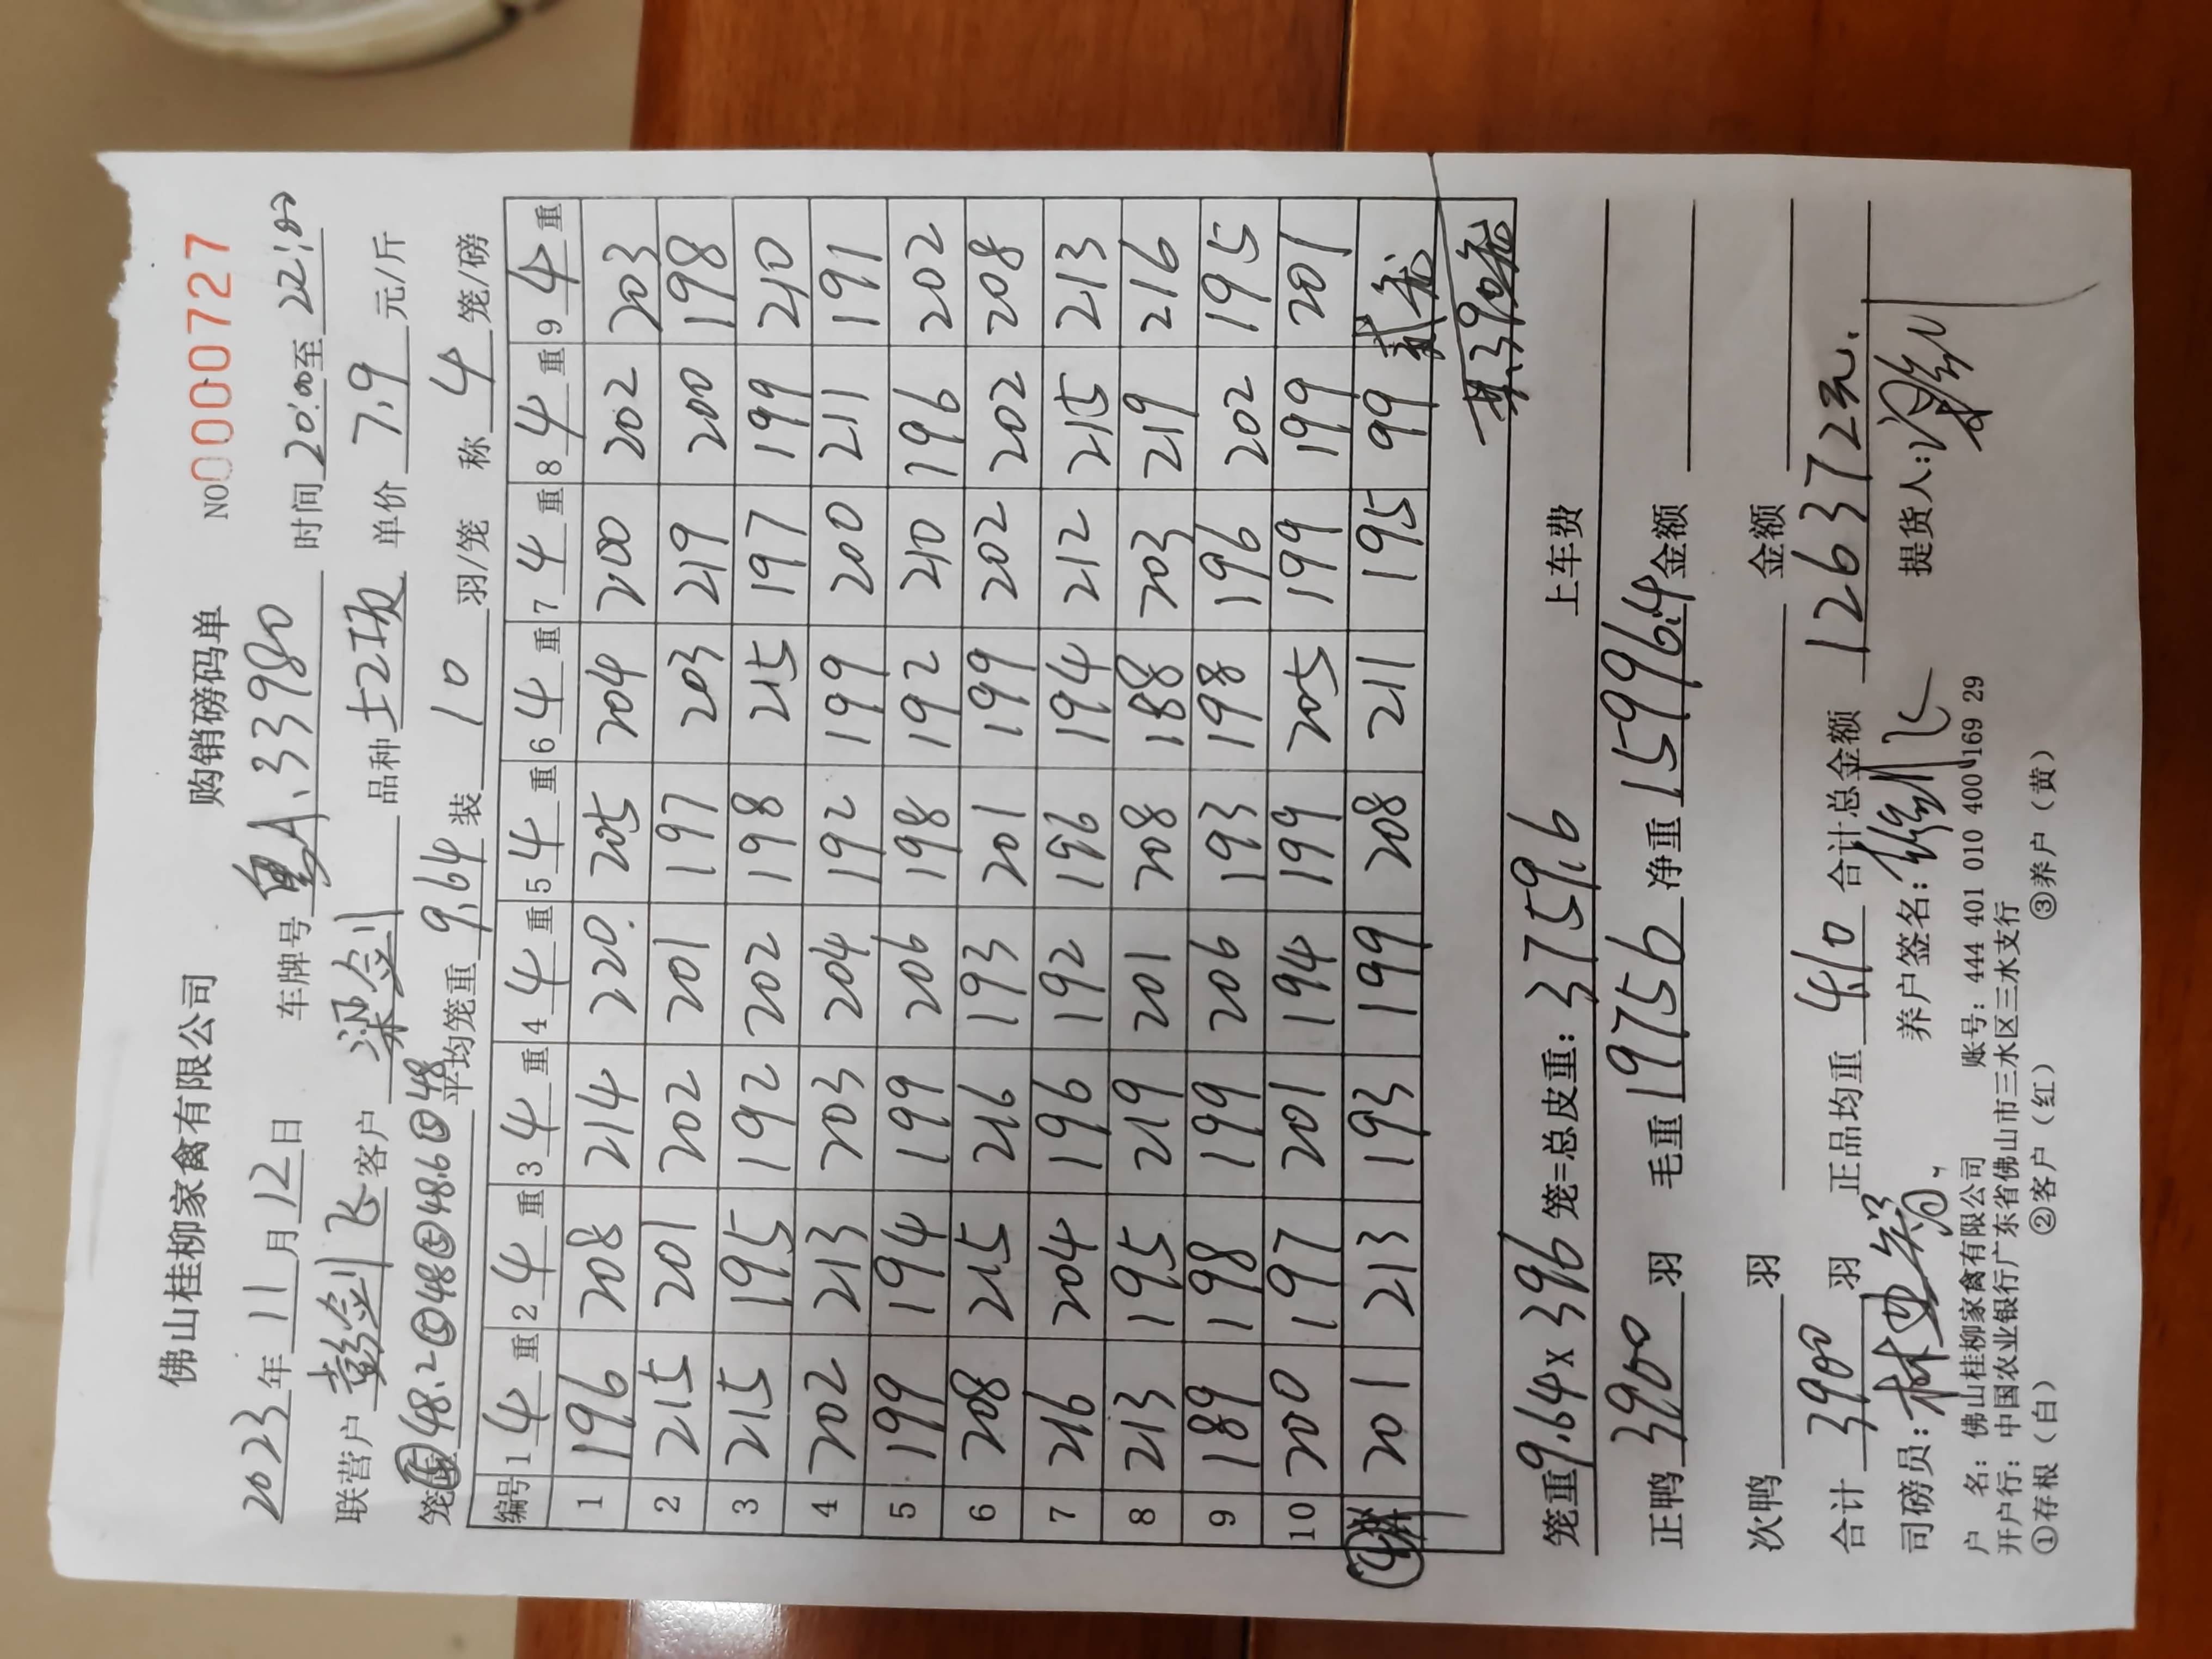 佛山桂柳家禽有限公司 购销磅码单 NO 0000727
2023年11月12日 车牌号 A.33980 时间20:00至22:00
联营户 彭剑飞 客户 梁剑 品种 土2项 单价 7.9 元/斤
笼 48.2 ⑤ 48 ⑤ 48.6 @ 48 平均笼重 9.64 装 10 羽/笼 称 4 笼/磅
编号 1 4 重 2 4 重 3 4 重 4 4 重 5 4 重 6 4 重 7 4 重 8 4 重 9 4 重
1 196 208 214 220. 205 204 200 202 203
2 215 201 202 201 197 203 219 200 198
3 215 195 192 202 198 215 197 199 210
4 202 213 203 204 192 199 200 211 191
5 199 194 199 206 198 192 210 196 202
6 208 215 216 193 201 199 202 202 208
7 216 204 196 192 196 194 212 215 213
8 213 195 219 201 208 188 203 219 216
9 189 198 199 206 193 198 196 202 195
10 200 197 201 194 199 205 199 199 201
201 213 193 199 208 211 195 99 贰龙
共390龙
笼重9.64 x 396 笼=总皮重: 3759.6 上车费
正鸭 3900 羽 毛重 19756 净重 15996.4 金额
次鸭 羽 金额
合计 3900 羽 正品均重 4.10 合计总金额 126372元.
司磅员: 养户签名: 提货人:
户 名: 佛山桂柳家禽有限公司 账号: 444 401 010 400 169 29
开户行: 中国农业银行广东省佛山市三水区三水支行
①存根（白） ②客户（红） ③养户（黄）